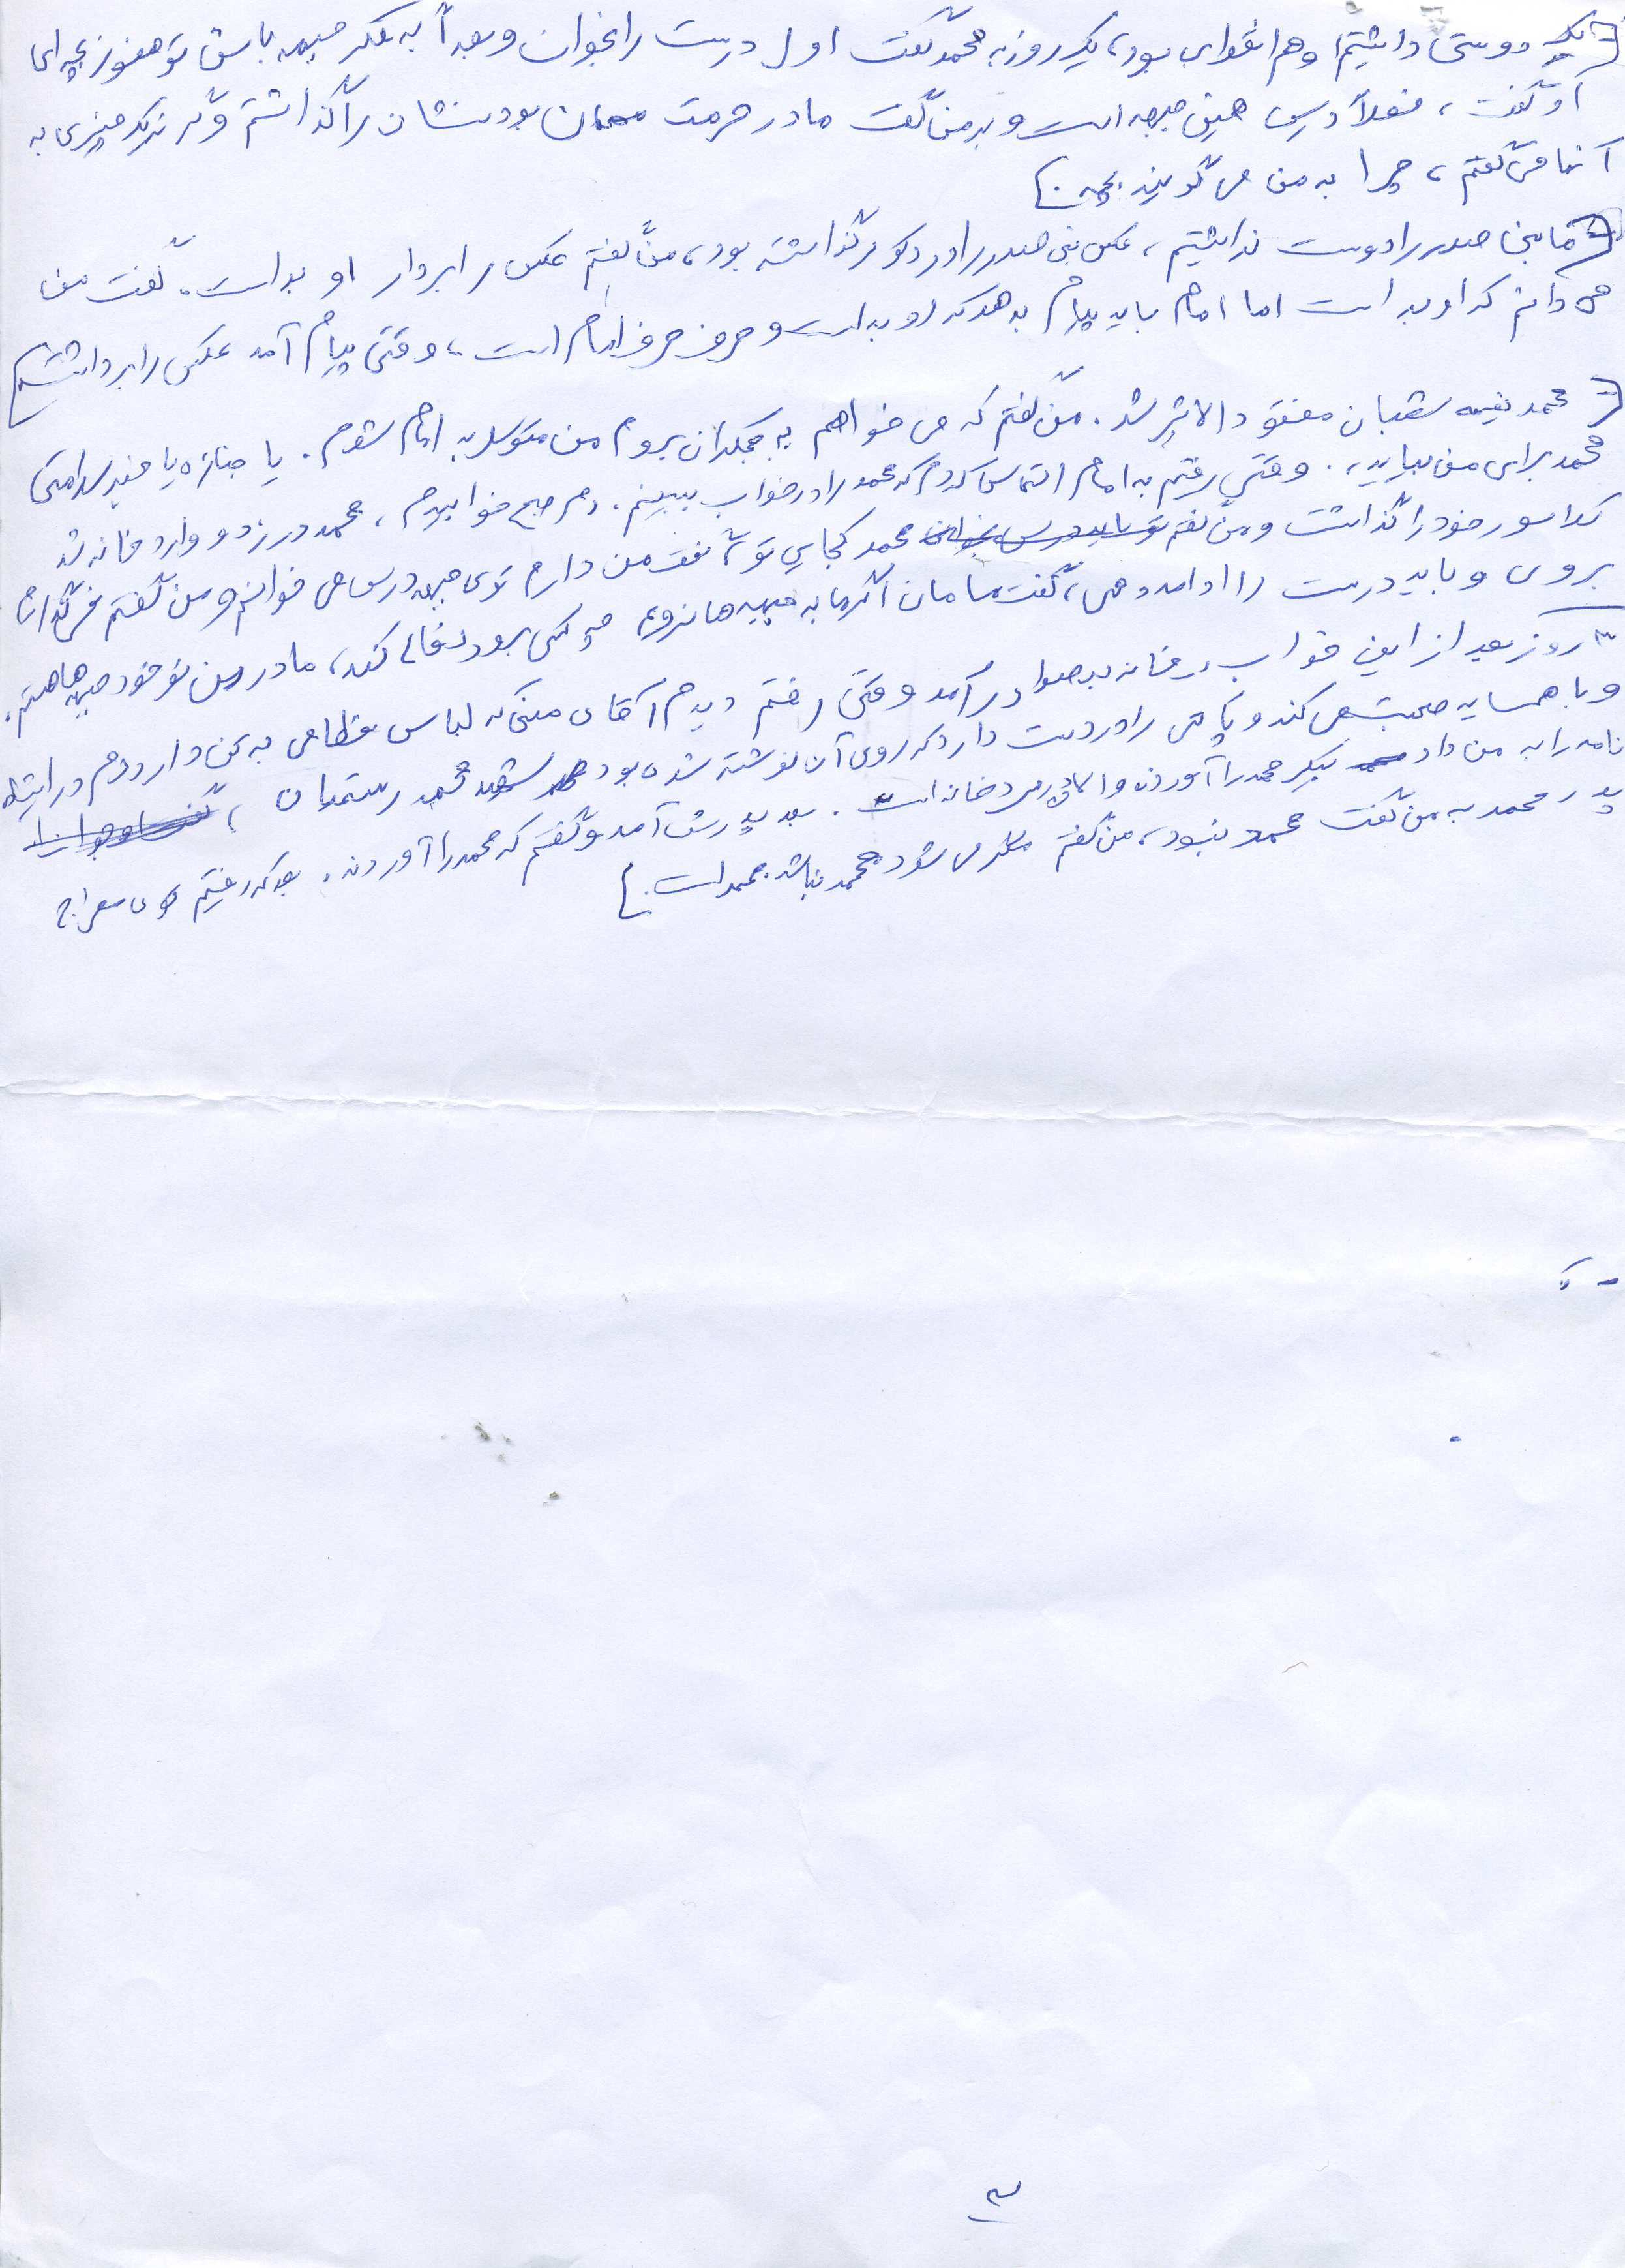 [یک دوستی داشتیم او هم اهوازی بود، یک روز به محمد گفت اول درست را بخوان و بعداً به فکر جبهه باش تو هنوز بچه ای
او گفت، فعلاً درس همین جبهه است و به من گفت مادر حرمت مهمان بودنشان را گذاشتم وگرنه یک چیزی به
آنها می گفتم، چرا به من می گویند بچه.]
[ما بنی صدر را دوست نداشتیم، عکس بنی صدر را در دکور گذاشته بود، من گفتم عکس را بردار او بد است. گفت من
می دانم که او بد است اما امام باید پیام بدهد که او بد است و حرف حرف امام است، وقتی پیام آمد عکس را برداشت.]
[محمد نیمه شعبان مفقود الاثر شد. من گفتم که می خواهم به جمکران بروم من متوسل به امام شوم. یا جنازه یا خبر سلامتی
محمد برای من بیاید. وقتی رفتم به امام التماس کردم که محمد را در خواب ببینم. دم صبح خوابیدم، محمد در زد و وارد خانه شد
خود را گذاشت و من گفتم محمد کجایی تو؟ گفت من دارم توی جبهه درس می خوانم و من گفتم نمی گذارم
بروی و باید درست را ادامه دهی، گفت مامان اگر ما به جبهه ها نرویم چه کسی برود دفاع کند، مادر من تو خود جبهه ها هستم.
۳ روز بعد از این خواب در خانه به صدا در آمد وقتی رفتم دیدم آقای متکی که لباس نظامی به تن دارد دم در ایستاده
و با همسایه صحبت می کند و پاکتی را در دست دارد که روی آن نوشته شده بود شهید محمد رستمیان،
نامه را به من داد پیکر محمد را آوردند و الان در سردخانه است. بعد پدرش آمد و گفتم که محمد را آوردند. بعد که رفتیم توی معراج
پدر محمد به من گفت محمد نبود، من گفتم مگر می شود محمد نباشد، محمد است.]
۳